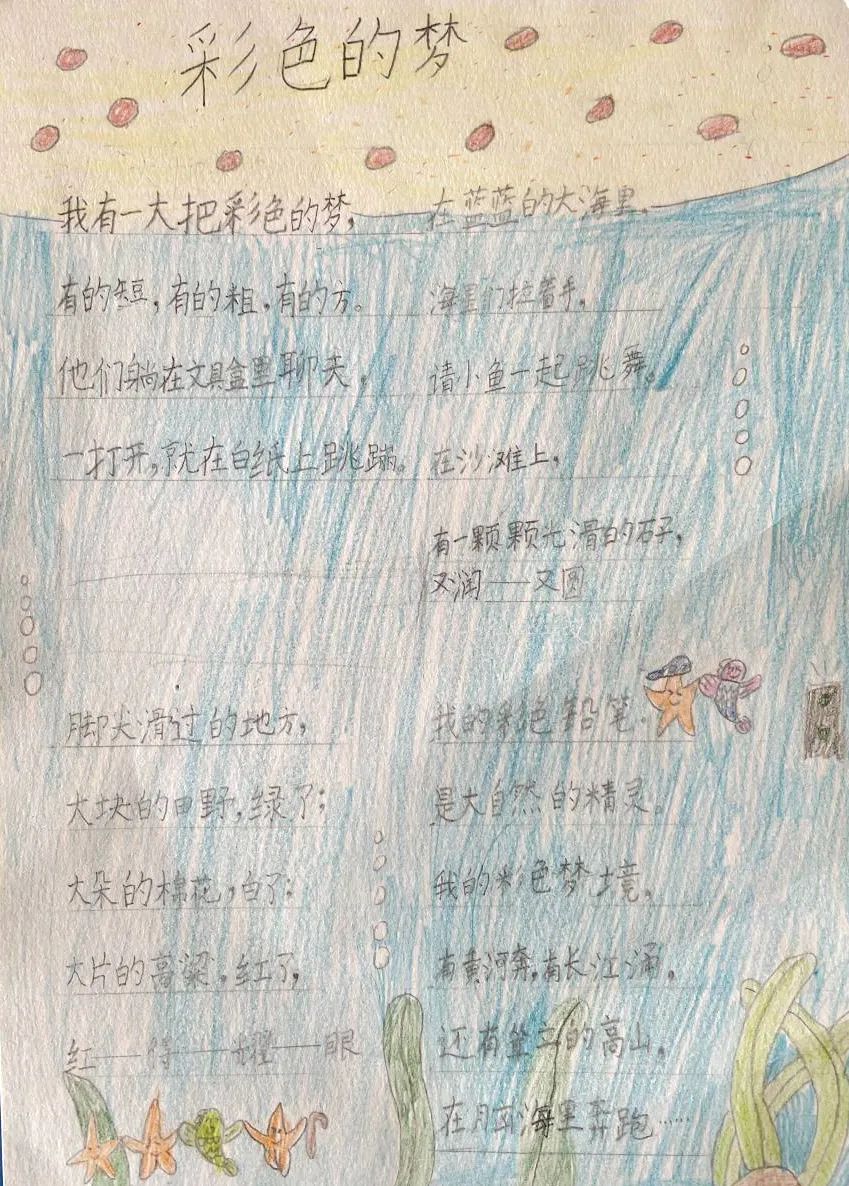 彩色的梦
我有一大把彩色的梦，
有的短，有的粗，有的方。
他们躺在文具盒里聊天，
一打开，就在白纸上跳蹦。
脚尖滑过的地方，
大块的田野，绿了；
大朵的棉花，白了；
大片的高粱，红了，
红——得——耀——眼
在蓝蓝的大海里，
海星们拉着手，
请小鱼一起跳舞。
在沙滩上，
有一颗颗光滑的石子，
又润——又圆
我的彩色铅笔，
是大自然的精灵。
我的彩色梦境，
有黄河奔，有长江涌，
还有耸立的高山，
在月海里奔跑……